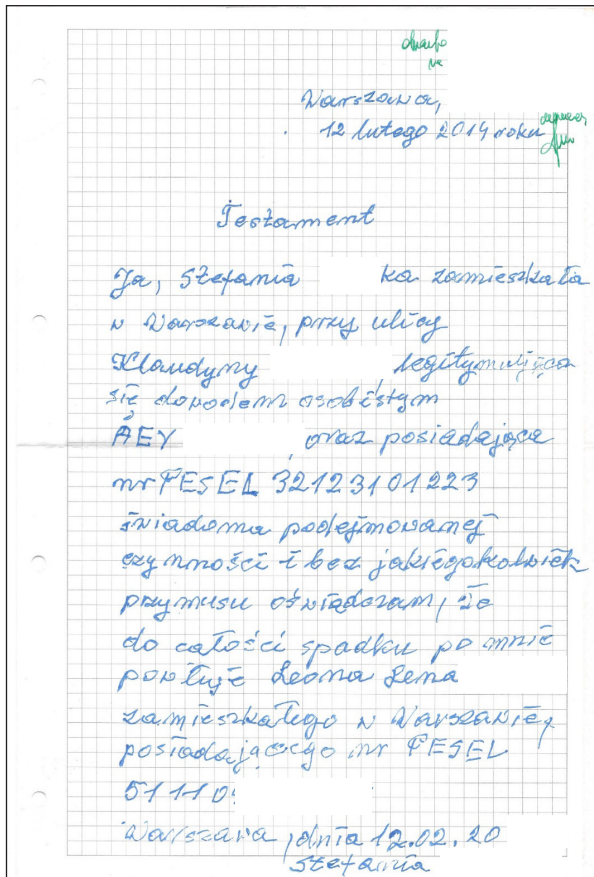 Warszawa,
12 lutego 2014 roku
Testament
Ja, Stefania ka zamieszkała
w Warszawie, przy ulicy
Klaudyny legitymująca
się dowodem osobistym
AEY , oraz posiadająca
nr PESEL 32123101223
świadoma podejmowanej
czynności i bez jakiegokolwiek
przymusu oświadczam, że
do całości spadku po mnie
powołuję Leona
zamieszkałego w Warszawie,
posiadającego nr PESEL
51110
Warszawa, dnia 12.02.20
Stefania